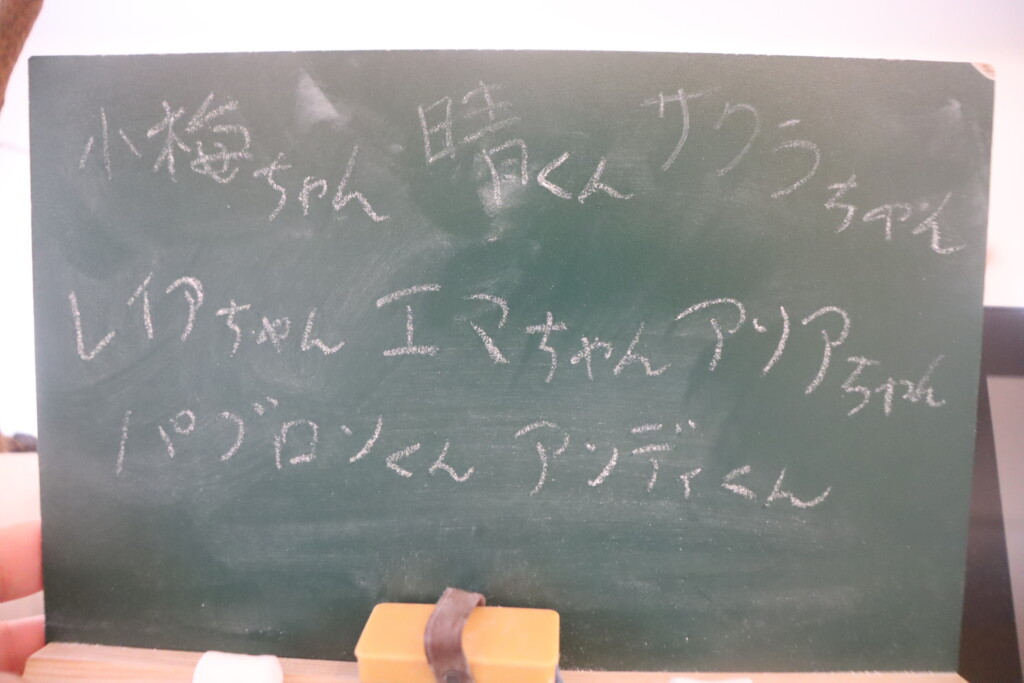 小梅ちゃん 晴くん サクラちゃん
レイアちゃん エマちゃん アソアちゃん
パブロンくん アンディくん